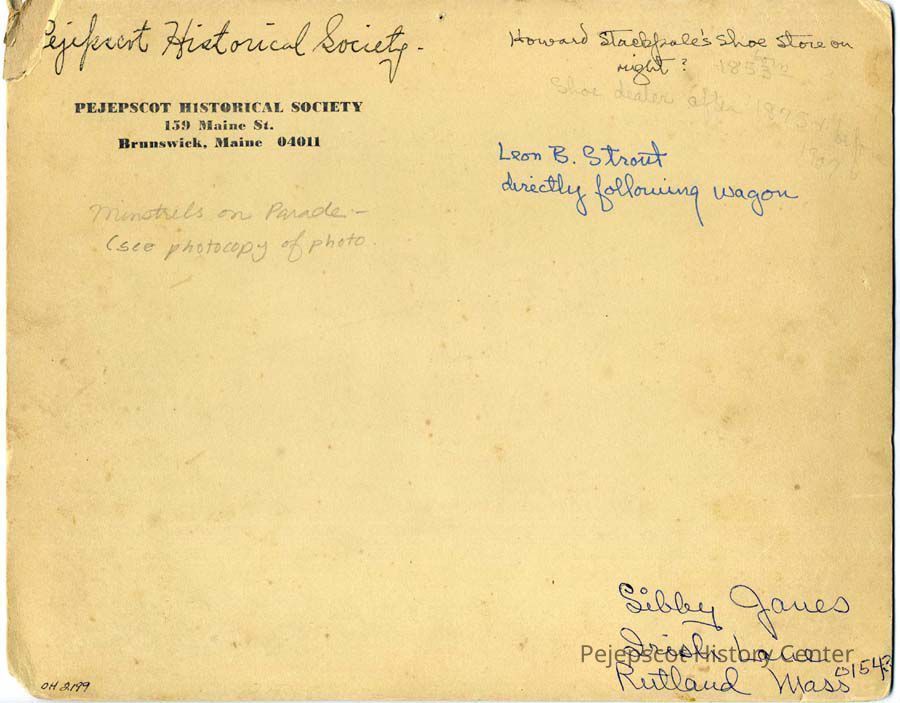 Pejepscot Historical Society-
PEJEPSCOT HISTORICAL SOCIETY
159 Maine St.
Brunswick, Maine 04011
Minstrels on Parade-
(see photocopy of photo.
Howard Stackpole's Shoe Store on
right? 1855
Shoe dealer after 1875
Leon B. Strout
directly following wagon
Libby Janes
Irish Lane
Rutland Mass 01543
Pejepscot History Center
OH 2199